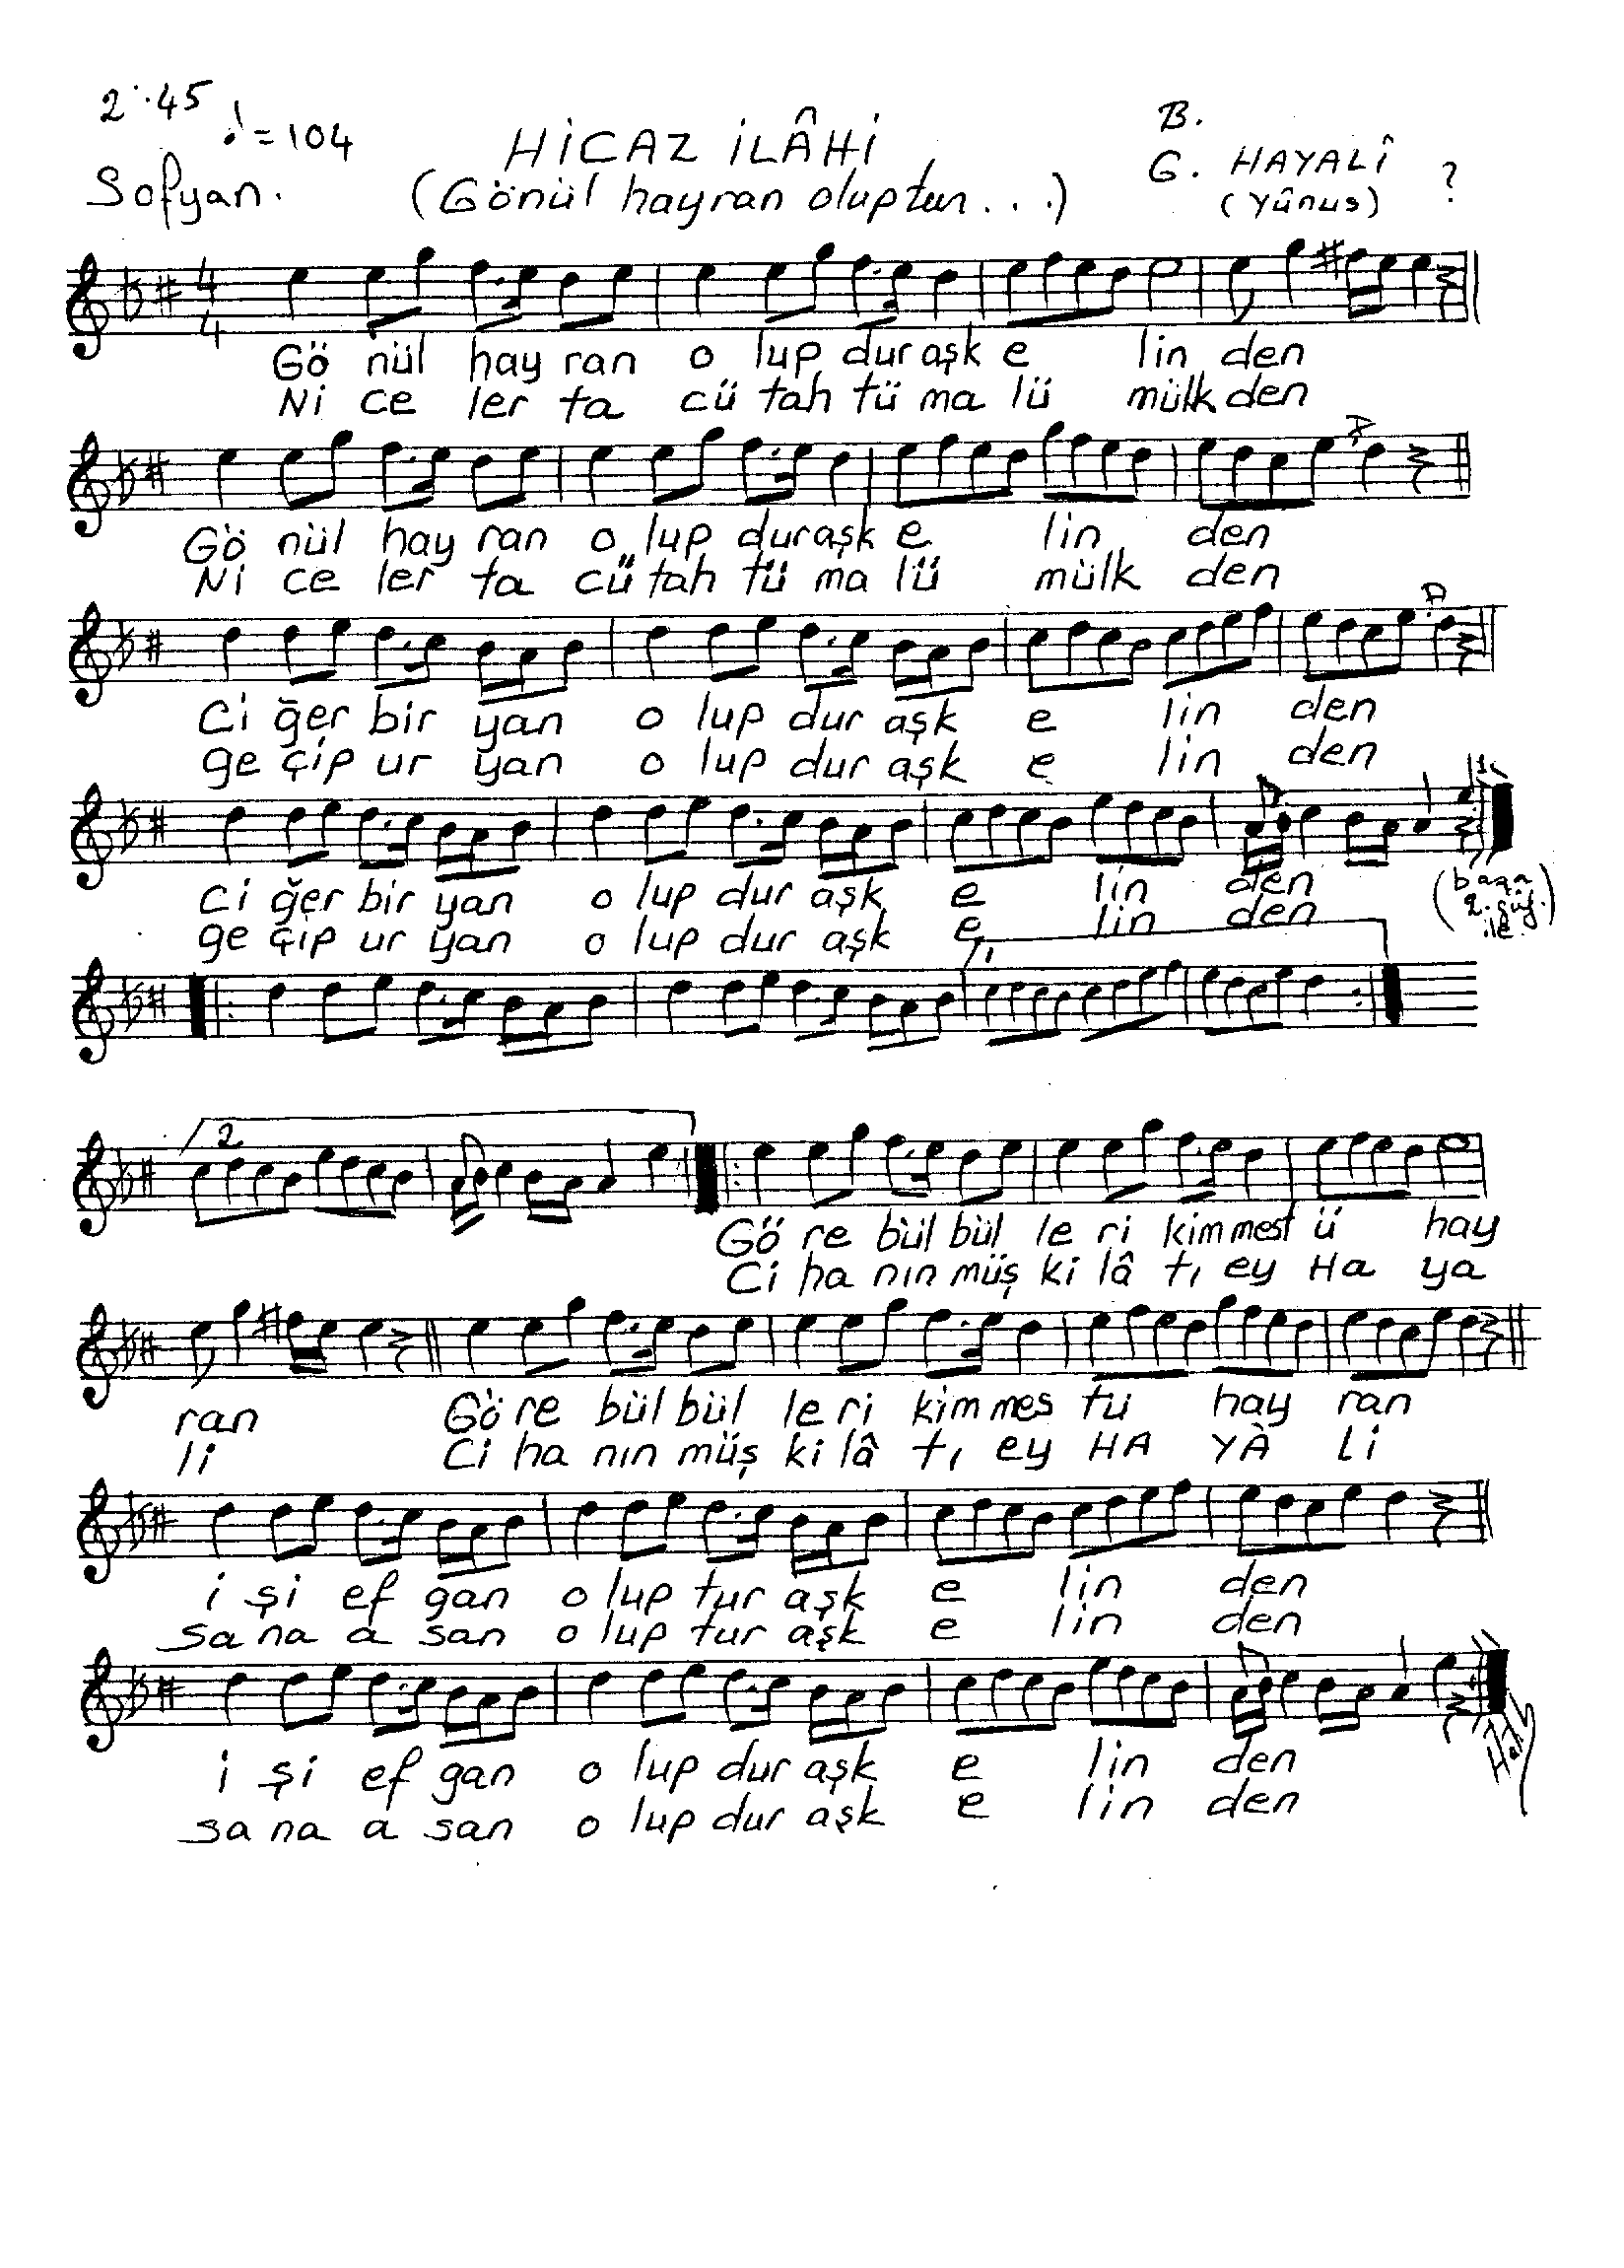 2'.45
♩=104
HİCAZ İLÂHİ
B.
Sofyan.
(Gönül hayran oluptur...)
G. HAYALÎ ?
(Yûnus)
4
4
Gö nül hay ran o lup dur aşk e lin den
Ni ce ler ta cü tah tü ma lü mülk den
Gö nül hay ran o lup dur aşk e lin den
Ni ce ler ta cü tah tü ma lü mülk den
Ci ğer bir yan o lup dur aşk e lin den
ge çip ur yan o lup dur aşk e lin den
Ci ğer bir yan o lup dur aşk e lin den
ge çip ur yan o lup dur aşk e lin den
1
2
Gö re bül bül le ri kim mest ü hay
Ci ha nın müş ki lâ tı ey Ha ya
ran Gö re bül bül le ri kim mes tü hay ran
li Ci ha nın müş ki lâ tı ey HA YÀ Lİ
i şi ef gan o lup tur aşk e lin den
sa na a san o lup tur aşk e lin den
i şi ef gan o lup dur aşk e lin den
sa na a san o lup dur aşk e lin den